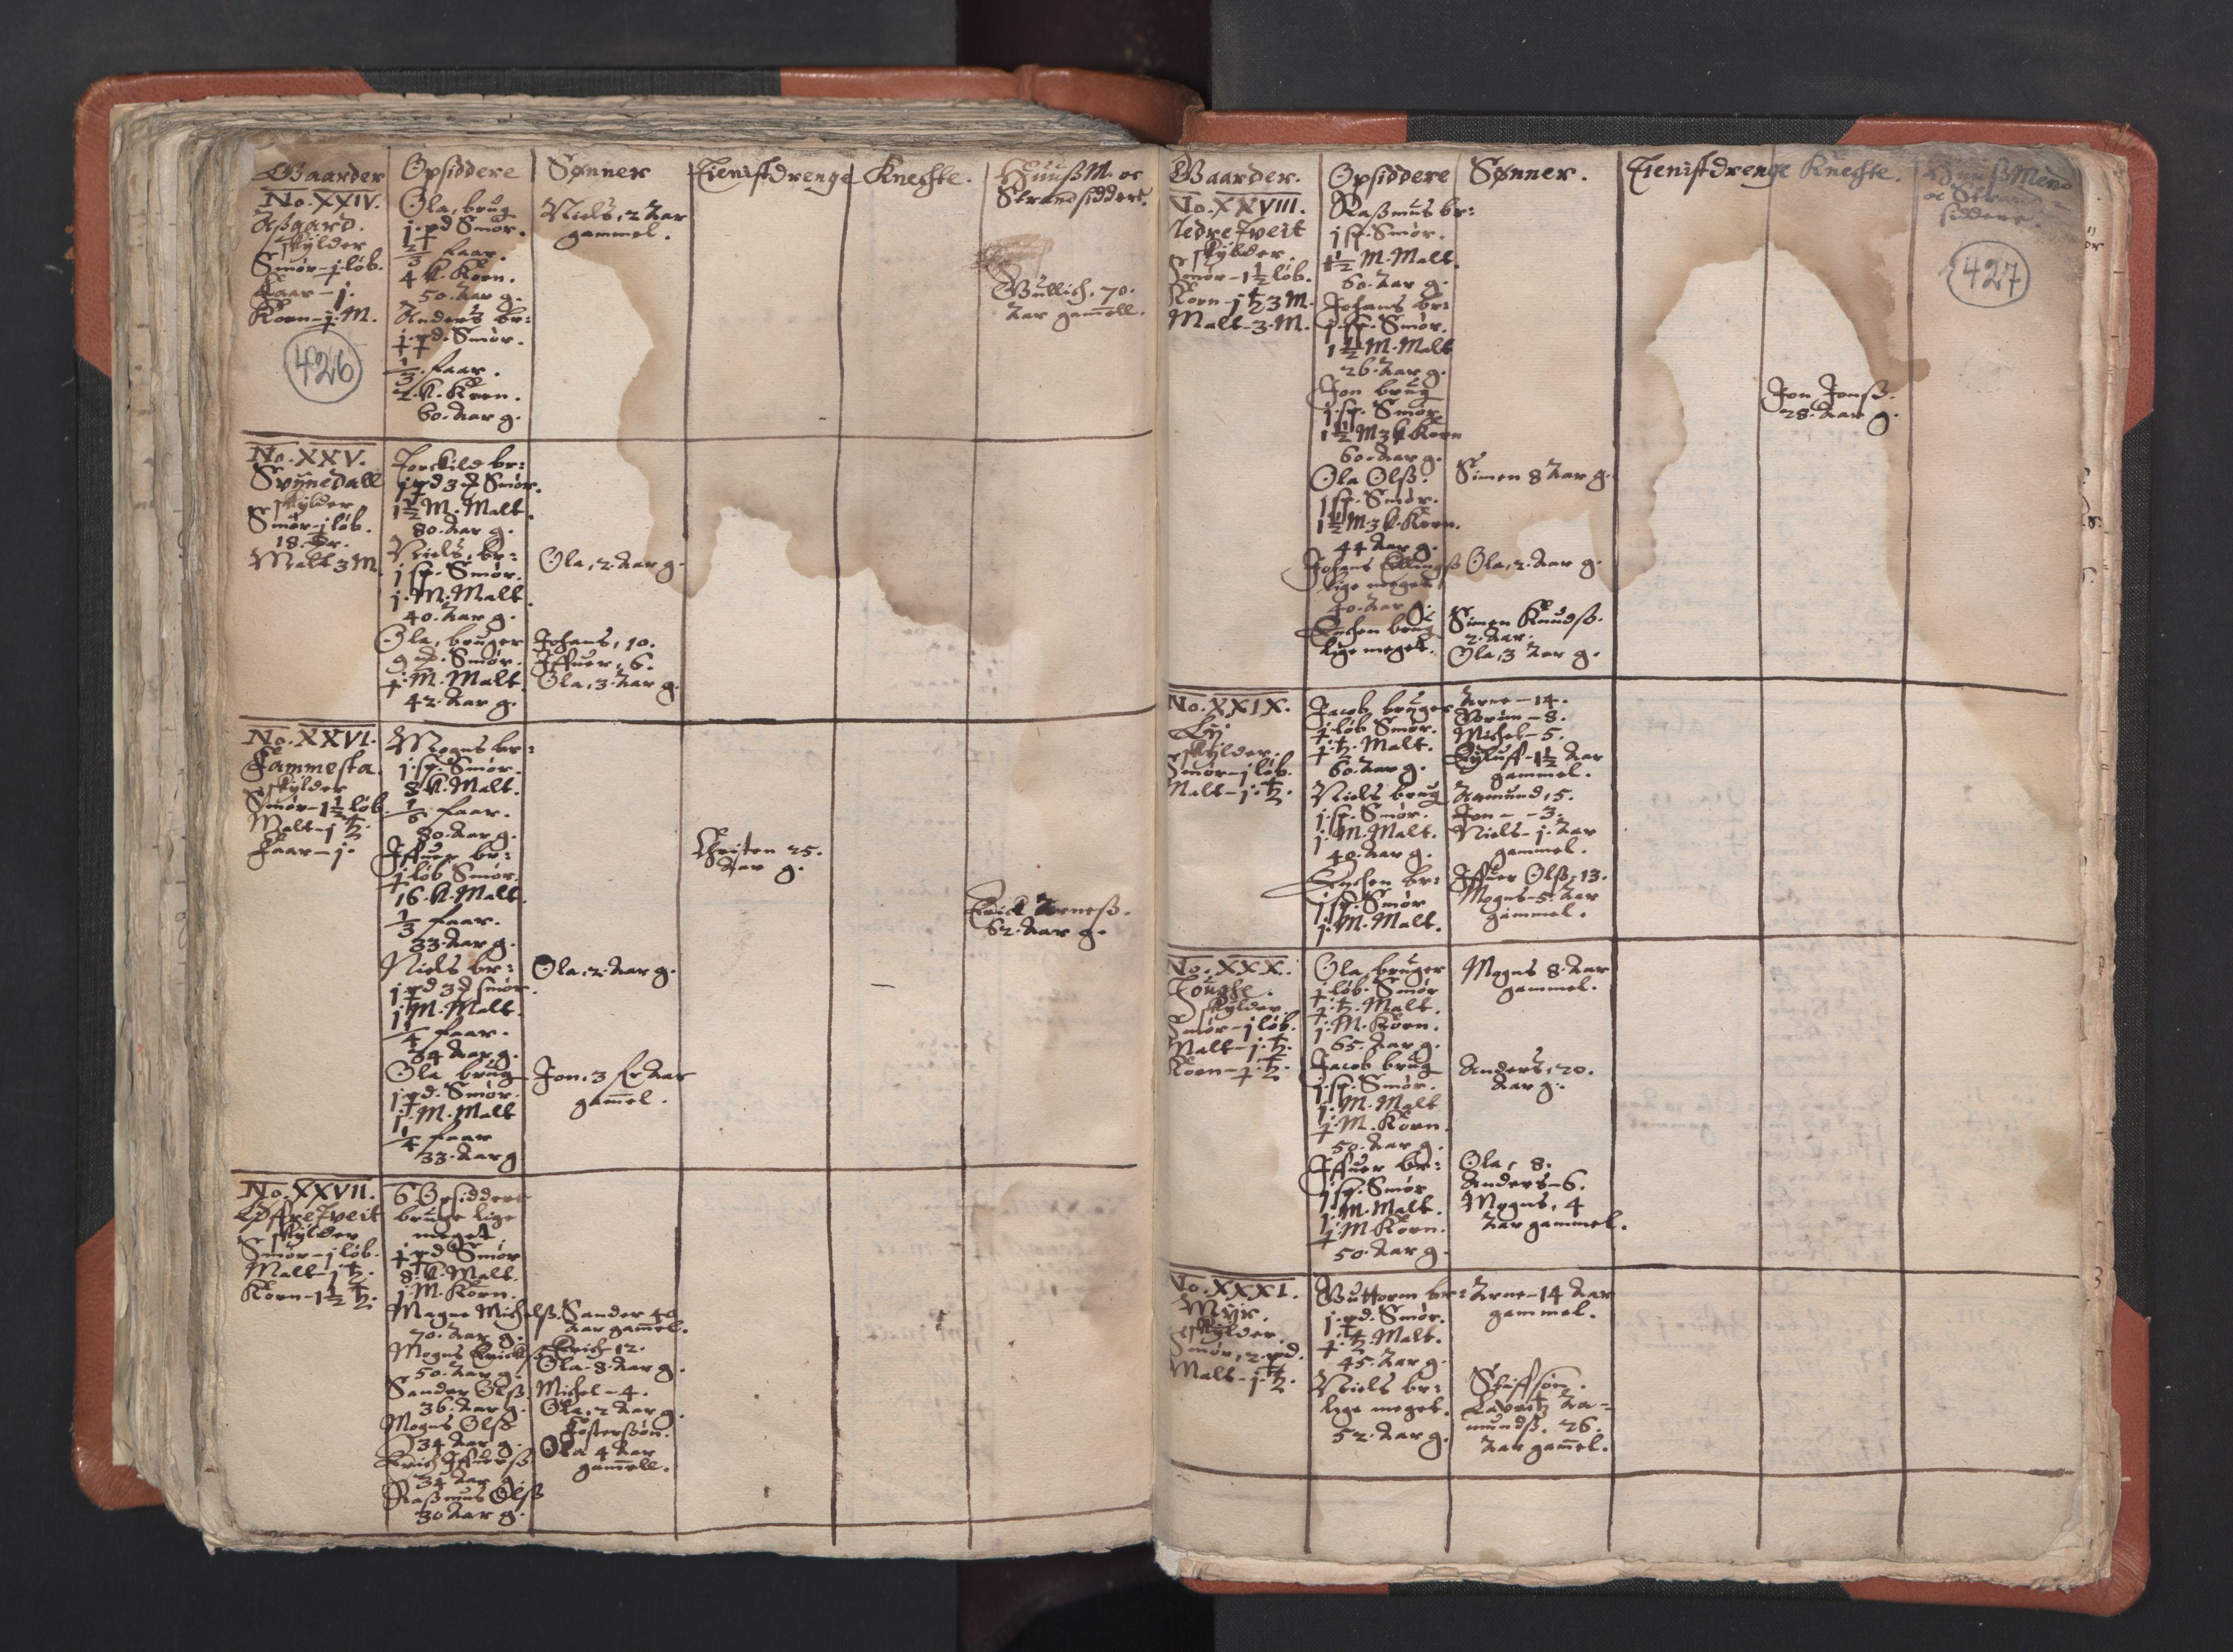 Gaarder
Opsiddere
Sønner
Tienistdrenge
Knechte.
Huuß M. oc
Strandsiddere.
No. XXIV.
Aßgaard.
skylder
Smør - j løb.
Faar - j.
Korn - j. M.
426
Ola, brug
j. pd Smør.
1/3 faar.
4 K. Korn.
50. Aar g.
Anders br:
j. pd. Smør.
1/3. faar.
2. K. Korn.
60. Aar g.
Niels, 2 Aar
gammel.
Gullich. 70.
Aar gamell.
No. XXV.
Svÿnedall
skylder
Smør - j løb.
18.
Malt 3 M.
Torckild br:
j pd 3 Smør.
1 1/2 M. Malt.
80. Aar g.
Niels, br:
j sp. Smør.
j. M. Malt.
40. Aar g.
Ola, bruger
9 Smør.
j. M. Malt.
42. Aar g.
Ola, 2. Aar g.
Johans, 10.
Iffuer, 6.
Ola, 3. Aar g.
No. XXVI.
Fammesta.
skylder
Smør - 1 1/2 løb.
Malt - j
Faar - j.
Mogns br:
j. sp. Smør.
8 K. Malt.
1/6 faar.
80. Aar g.
Iffuer br:
j. løb Smør.
16. K. Malt.
1/3 faar.
33. Aar g.
Niels br:
j pd 3 smør.
j. M. Malt.
1/4 faar.
34 Aar g.
Ola brug
j pd. Smør.
j. M. Malt
1/4 faar
33. Aar g
Ola, 2. Aar g.
Jon, 3 Aar
gamel.
Christen 25.
Aar g.
Erick Arneß.
62. Aar g.
No. XXVII.
Øffretveit
skylder
Smør - j løb.
Malt - j
Korn - 1 1/2
6 Opsiddere
bruge lige
meget
j pd Smør
8. K. Malt.
j. M. Korn.
Magne Michelß.
70. Aar g.
Mogns Erickß
50. Aar g.
Sander Olß
36. Aar g.
Mogns Olß
34 Aar g.
Erich Iffuerß
34 Aar g.
Raßmus Olß
30 Aar g.
Sander 40
Aar gamel.
Erich - 12.
Ola - 8. Aar g.
Michel - 4.
Ola, 2 Aar g.
Fosterßøn.
Ola 4 Aar
gamell.
Gaarder.
Opsiddere
Sønner.
Tienistdrenge
Knechte.
Huußmend
oc Strand-
siddere.
427
No. XXVIII.
Nedretveit
skylder.
Smør - 1 1/2 løb.
Korn - j 3 M.
Malt - 3. M.
Raßmus br:
j sp. Smør.
1 1/2 M. Malt.
60. Aar g.
Johans br:
j. sp. Smør.
1 1/2 M. Malt
26. Aar g.
Jon brug
j. sp. Smør
1 1/2 M 3 K. Korn
60. Aar g.
Ola Olß.
j sp. Smør.
1 1/2 M. 3 K. Korn.
44 Aar g.
Johans Ellingß
lige meget
40. Aar g.
Enchen brug
lige meget.
Simen 8 Aar g.
Ola, 2. Aar g.
Simen Knudß.
2. Aar.
Ola, 3 Aar g.
Jon Jonß.
28. Aar g.
No. XXIX.
Lÿ
skylder.
Smør - j løb.
Malt - j.
Jacob bruger
j. løb Smør.
j. Malt.
60. Aar g.
Niels brug
j. sp. Smør.
j. M. Malt.
40. Aar g.
Enchen br:
j sp. Smør
j. M. Malt.
Arne - 14.
Gorim - 8.
Michel - 5.
Eyluff - 1 1/2 Aar
gammel.
Aamund, 5.
Jon - - 3.
Niels - j. Aar
gammel.
Iffuer Olß, 13.
Mogns - 5. Aar
gammel.
No. XXX.
skylder.
Smør - j løb.
Malt - j.
Korn - j.
Ola, bruger
j. løb. Smør
j. Malt.
j. M. Korn.
65. Aar g.
Jacob brug
j. sp. Smør.
j. M. Malt
j. M. Korn.
50. Aar g.
Iffuer br:
j sp. Smør
j. M. Malt.
j. M Korn.
50. Aar g.
Mogns 8. Aar
gammel.
Anders, 20.
Aar g.
Ola, 8.
Anders - 6.
Mogns, 4
Aar gammel.
No. XXXI.
Myr.
skylder.
Smør, 2. pd.
Malt - j.
Guttorm br:
j. pd. Smør.
j. Malt.
45. Aar g.
Niels br:
lige meget.
52. Aar g.
Arne - 14 Aar
gammel.
Stifsøn.
Lavritz Aa-
mundß. 26.
Aar gamel.